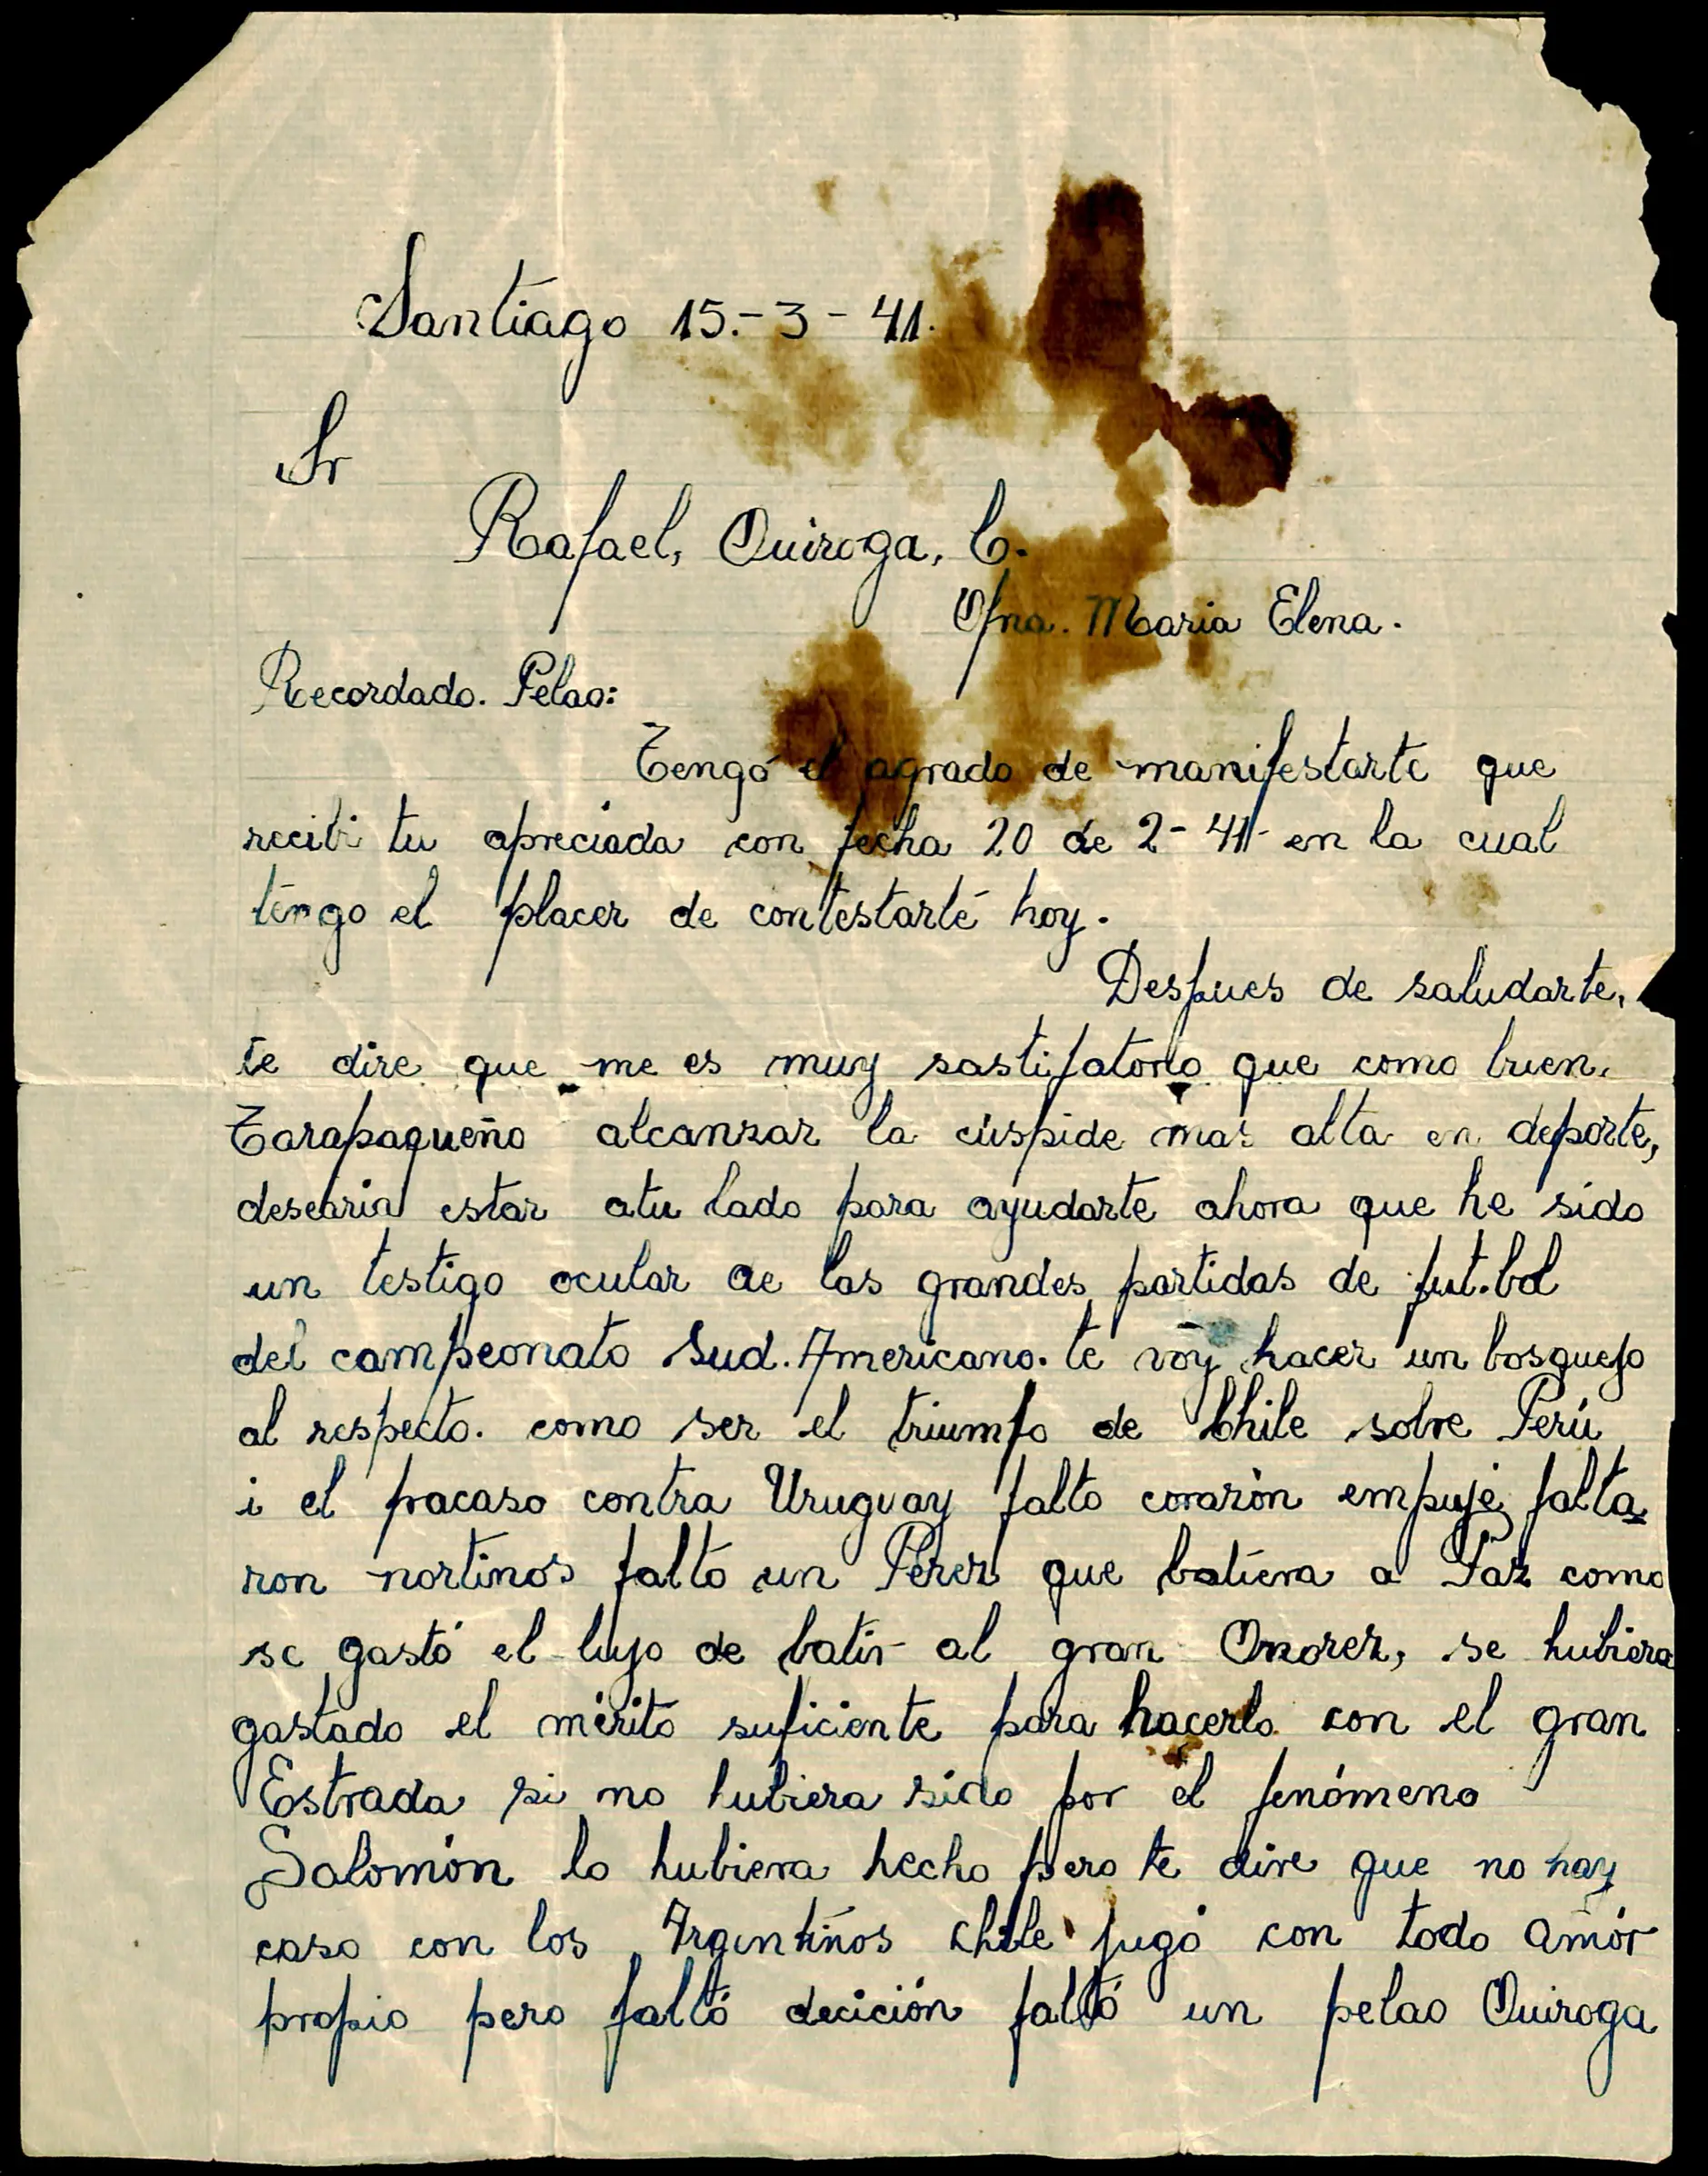 Santiago 15.-3-41.
Sr
Rafael, Quiroga, C.
Ofna. Maria Elena.
Recordado. Pelao:
Tengo el agrado de manifestarte que
recibi tu apreciada con fecha 20 de 2-41- en la cual
tengo el placer de contestarte hoy.
Despues de saludarte,
te dire que me es muy sastifatorio que como buen.
Tarapaqueño alcanzar la cúspide mas alta en deporte,
desearia estar atu lado para ayudarte ahora que he sido
un testigo ocular de las grandes partidas de fut.bol
del campeonato Sud.Americano. te voy hacer un bosquejo
al respecto. como ser el triumfo de Chile sobre Perú
i el fracaso contra Uruguay falto corazón empuje falta-
ron nortinos falto un Perez que batiera a Paz como
se gastó el lujo de batir al gran Onorez, se hubiera
gastado el mérito suficiente para hacerlo con el gran
Estrada si no hubiera sido por el fenómeno
Salomón lo hubiera hecho pero te dire que no hay
caso con los Argentinos Chile jugó con todo amór
propio pero faltó decición faltó un pelao Quiroga